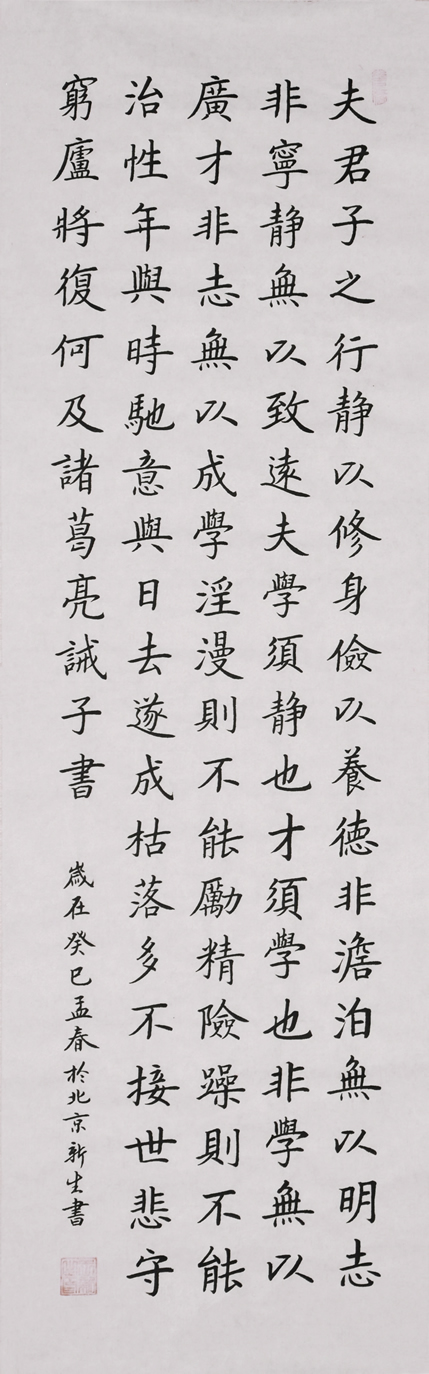 夫君子之行静以修身儉以養德非澹泊無以明志
非寧静無以致遠夫學須静也才須學也非學無以
廣才非志無以成學淫漫則不能勵精險躁則不能
治性年與時馳意與日去遂成枯落多不接世悲守
窮廬將復何及諸葛亮誡子書
歲在癸巳孟春於北京新生書